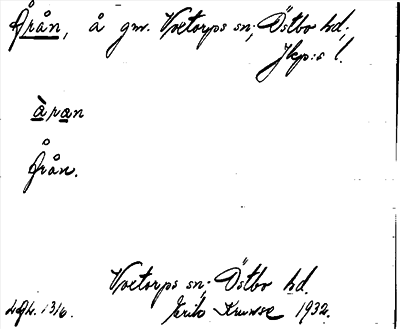 Årån, å gm. Voetorps sn; Östbo hd;
Jkp:s l.
àran
Årån.
Voetorps sn; Östbo hd.
Lgh. 1316. Erik Kruuse 1932.